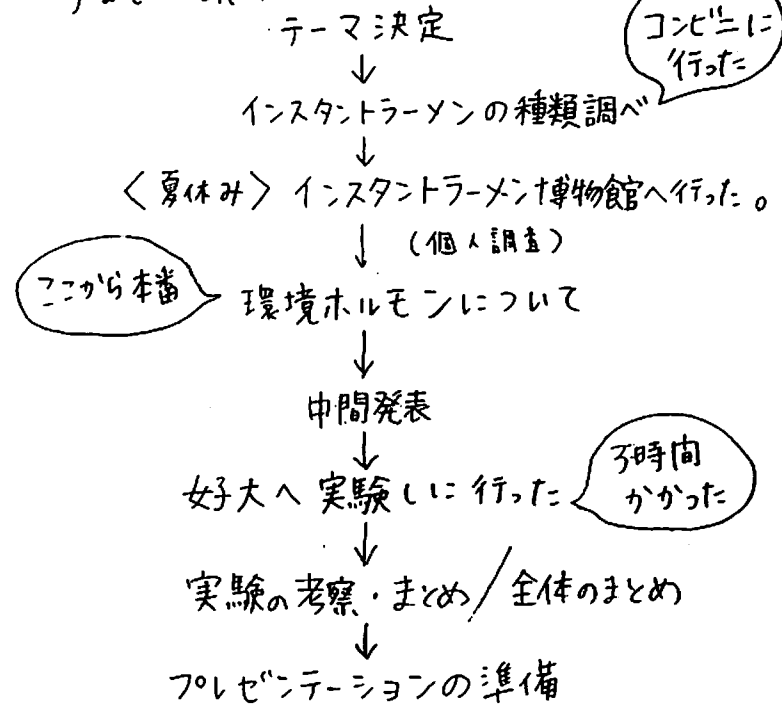 テーマ決定
コンビニに
行った
↓
インスタントラーメンの種類調べ
↓
〈夏休み〉インスタントラーメン博物館へ行った。
↓ (個人調査)
ここから本番
環境ホルモンについて
↓
中間発表
↓
女子大へ実験しに行った
3時間
かかった
↓
実験の考察・まとめ/全体のまとめ
↓
プレゼンテーションの準備